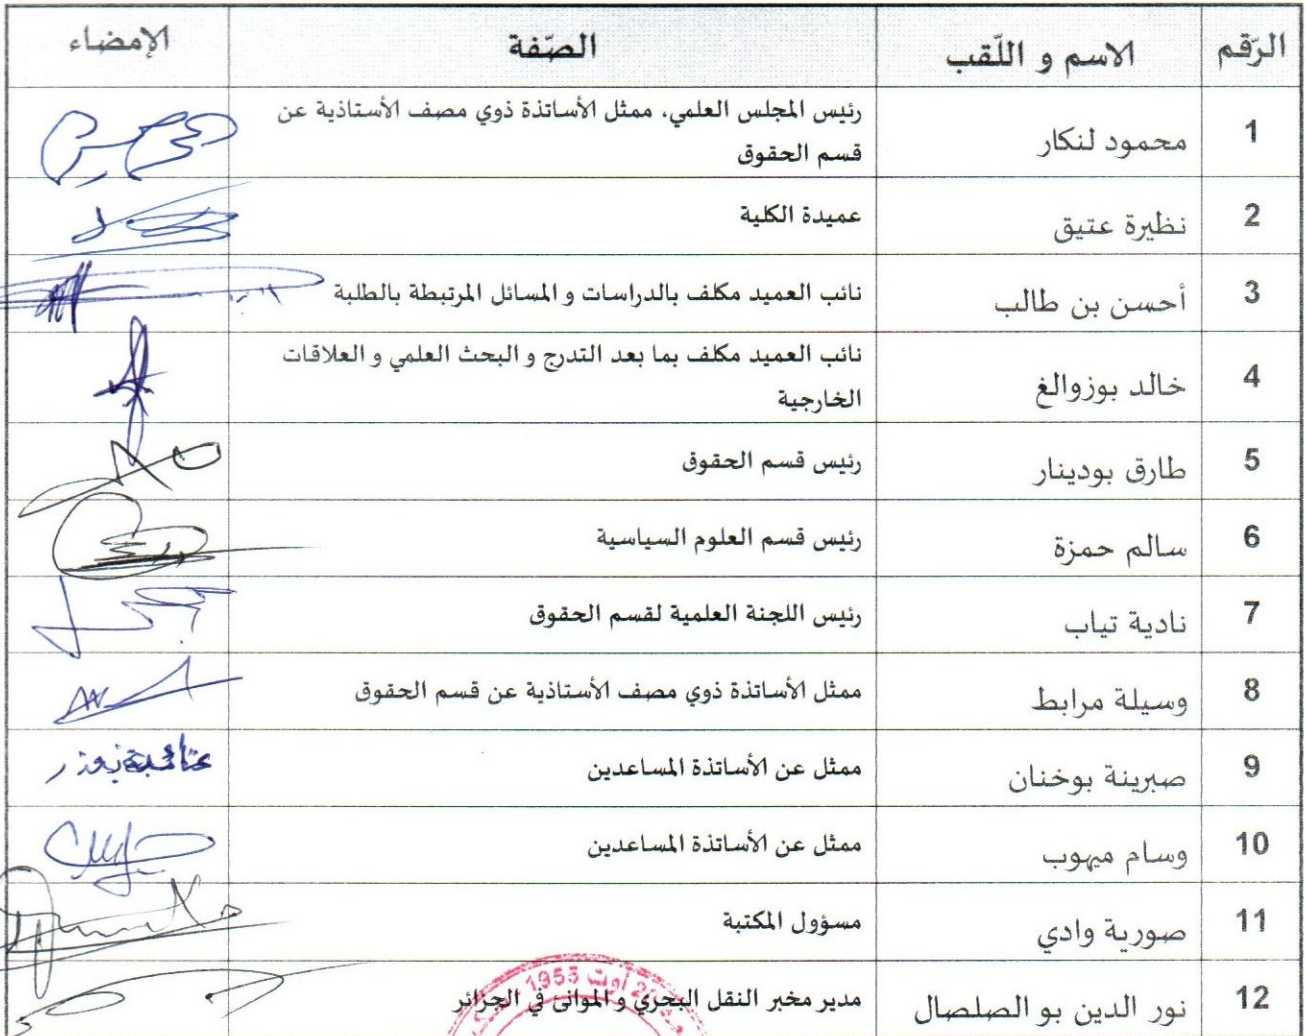 الرّقم الاسم و اللّقب الصّفة الإمضاء
1 محمود لنكار رئيس المجلس العلمي، ممثل الأساتذة ذوي مصف الأستاذية عن
قسم الحقوق
2 نظيرة عتيق عميدة الكلية
3 أحسن بن طالب نائب العميد مكلف بالدراسات و المسائل المرتبطة بالطلبة
4 خالد بوزوالغ نائب العميد مكلف بما بعد التدرج و البحث العلمي و العلاقات
الخارجية
5 طارق بودينار رئيس قسم الحقوق
6 سالم حمزة رئيس قسم العلوم السياسية
7 نادية تياب رئيس اللجنة العلمية لقسم الحقوق
8 وسيلة مرابط ممثل الأساتذة ذوي مصف الأستاذية عن قسم الحقوق
9 صبرينة بوخنان ممثل عن الأساتذة المساعدين
10 وسام ميهوب ممثل عن الأساتذة المساعدين
11 صورية وادي مسؤول المكتبة
12 نور الدين بو الصلصال مدير مخبر النقل البحري و الموانئ في الجزائر
20 أوت 1955